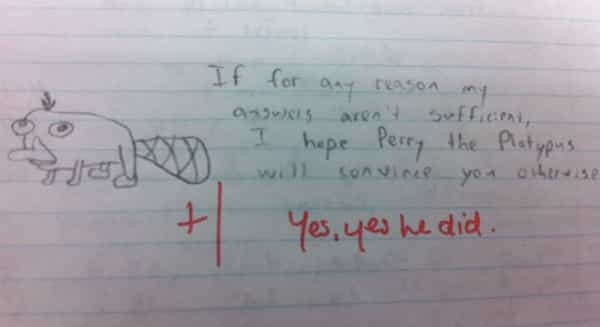 If for any reason my
answers aren't sufficient,
I hope Perry the Platypus
will convince you otherwise
+1 Yes, yes he did.